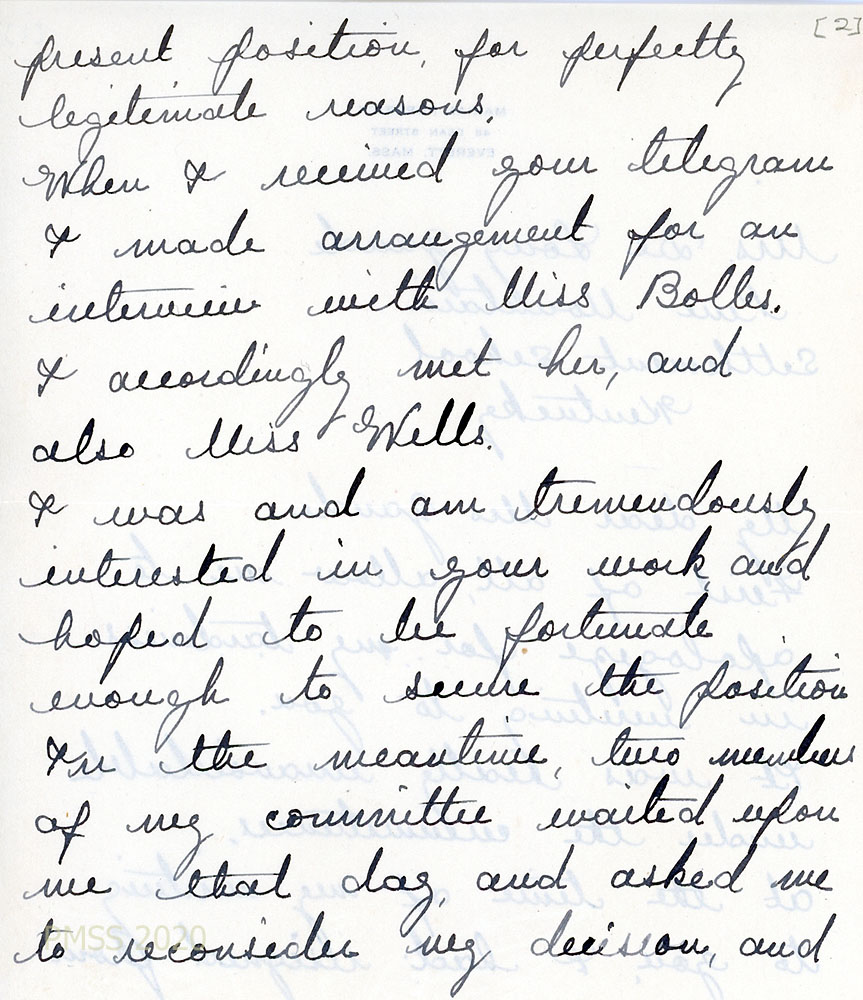 [2]
present position, for perfectly
legitimate reasons.
When I received your telegram
I made arrangement for an
interview with Miss Bolles.
I accordingly met her, and
also Miss Wells.
I was and am tremendously
interested in your work, and
hoped to be fortunate
enough to secure the position
In the meantime, two members
of my committee waited upon
me that day, and asked me
to reconsider my decision, and
PMSS 2020